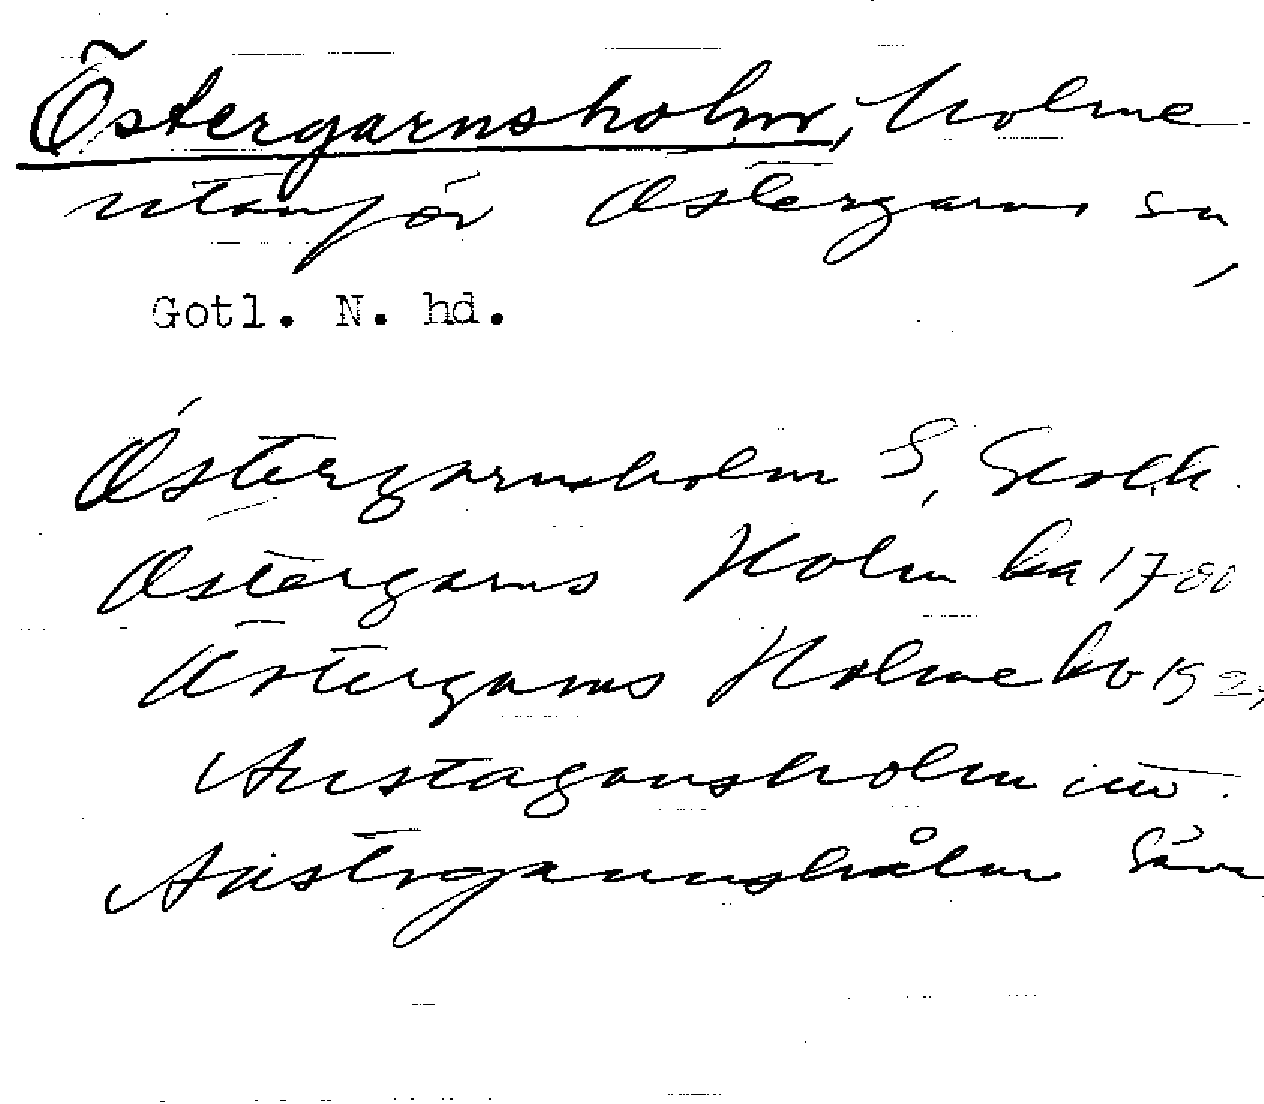 Östergarnsholm, holme
utanför Östergarns sn,
Gotl. N. hd.
Östergarnsholm S,
Östergarns Holm ka 1700
Östergarns Holme
Austagansholm
Austrgannshålm Säve